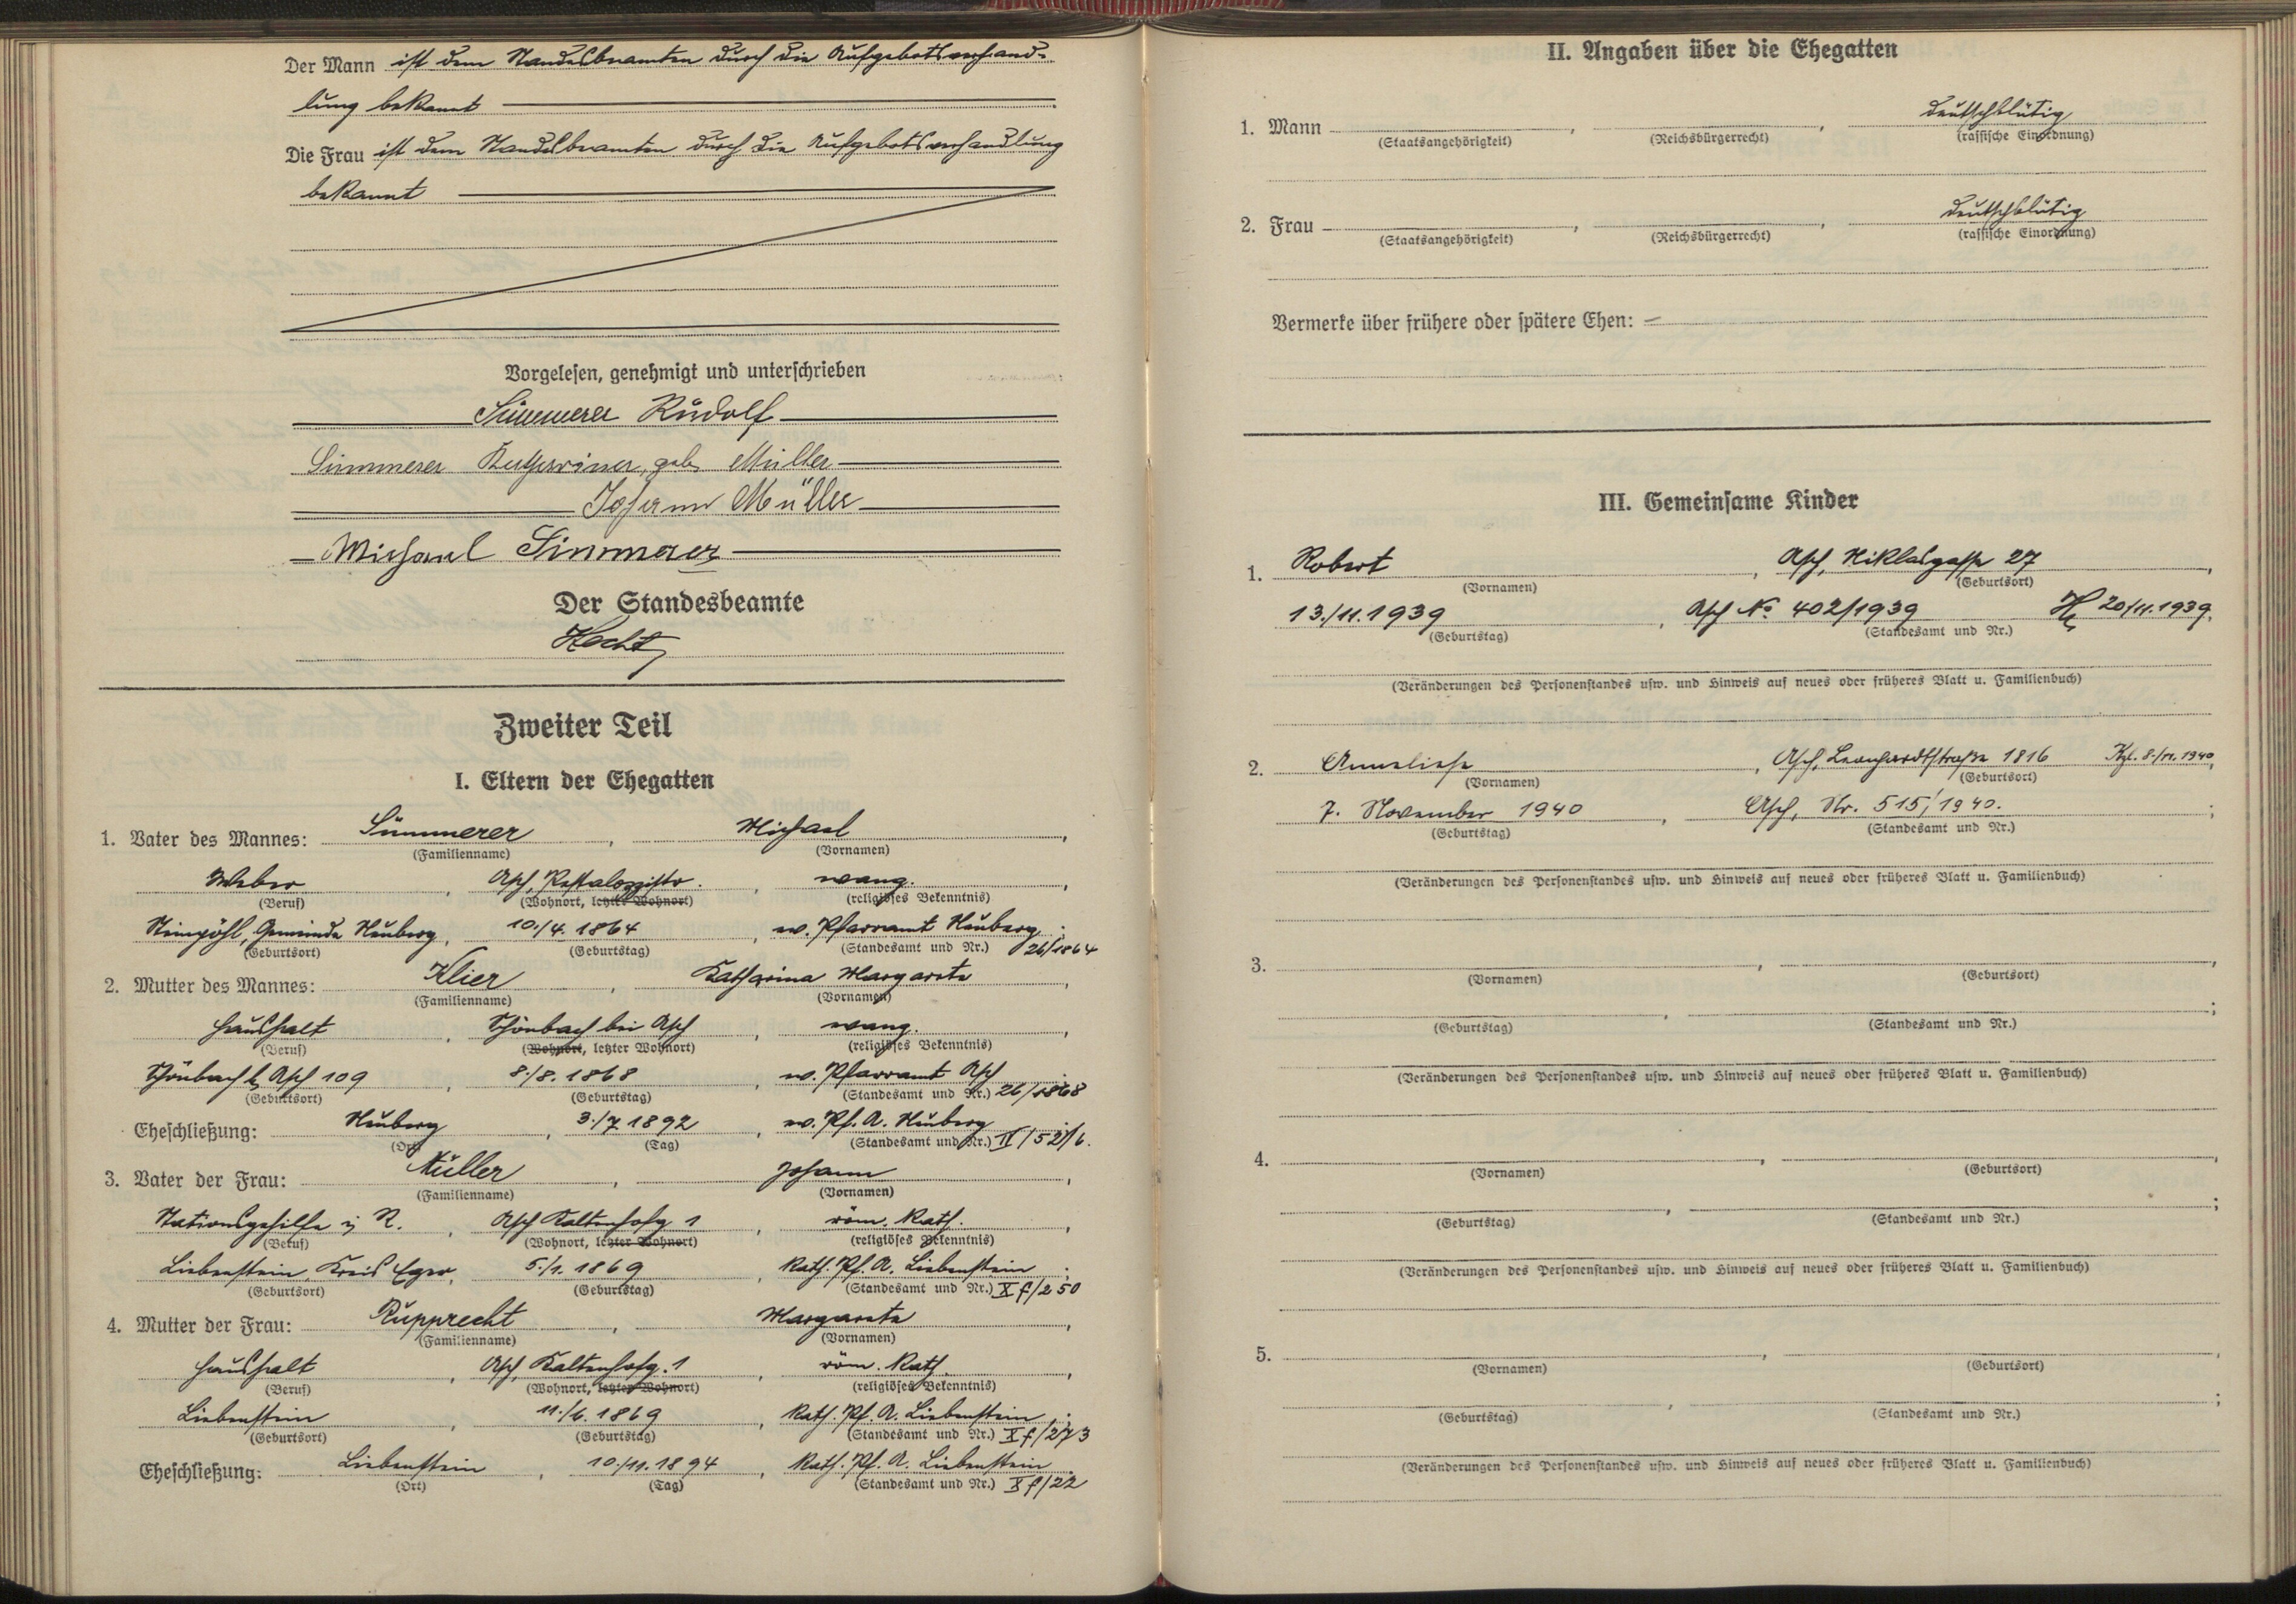 Der Mann ist dem Standesbeamten durch die Aufgebotsverhand-
lung bekannt
Die Frau ist dem Standesbeamten durch die Aufgebotsverhandlung
bekannt
Vorgelesen, genehmigt und unterschrieben
Simmerer Rudolf
Simmerer geb. Müller
Johann Müller
Michael Simmerer
Der Standesbeamte
Hecht
Zweiter Teil
I. Eltern der Ehegatten
1. Vater des Mannes: Simmerer, Michael,
(Familienname) (Vornamen)
Weber, Asch, Pestalozzistr., evang.,
(Beruf) (Wohnort, letzter Wohnort) (religiöses Bekenntnis)
Steinpöhl, Gemeinde Neuberg, 10./4. 1864, ev. Pfarramt Neuberg;
(Geburtsort) (Geburtstag) (Standesamt und Nr.) 26/1864
2. Mutter des Mannes: Klier, Katharina Margareta,
(Familienname) (Vornamen)
Haushalt, Schönbach bei Asch, evang.,
(Beruf) (Wohnort, letzter Wohnort) (religiöses Bekenntnis)
Schönbach b. Asch 109, 8./8. 1868, ev. Pfarramt Asch;
(Geburtsort) (Geburtstag) (Standesamt und Nr.) 26/1868
Eheschließung: Neuberg, 3./7 1892, ev. Pf. A. Neuberg
(Ort) (Tag) (Standesamt und Nr.) II/52/6.
3. Vater der Frau: Müller, Johann,
(Familienname) (Vornamen)
Stationsgehilfe i. R., Asch Kaltenhofg 1, röm. kath.,
(Beruf) (Wohnort, letzter Wohnort) (religiöses Bekenntnis)
Liebenstein, Kreis Eger, 5./1. 1869, kath. Pf. A. Liebenstein;
(Geburtsort) (Geburtstag) (Standesamt und Nr.) X f/250
4. Mutter der Frau: Rupprecht, Margareta,
(Familienname) (Vornamen)
Haushalt, Asch, Kaltenhofg. 1, röm. kath.,
(Beruf) (Wohnort, letzter Wohnort) (religiöses Bekenntnis)
Liebenstein, 11./6. 1869, kath. Pf. A. Liebenstein;
(Geburtsort) (Geburtstag) (Standesamt und Nr.) X f/273
Eheschließung: Liebenstein, 10./11. 1894, kath. Pf. A. Liebenstein.
(Ort) (Tag) (Standesamt und Nr.) X f/22
II. Angaben über die Ehegatten
1. Mann , , deutschblütig
(Staatsangehörigkeit) (Reichsbürgerrecht) (rassische Einordnung)
2. Frau , , deutschblütig
(Staatsangehörigkeit) (Reichsbürgerrecht) (rassische Einordnung)
Vermerke über frühere oder spätere Ehen: –
III. Gemeinsame Kinder
1. Robert, Asch, Niklasgasse 27,
(Vornamen) (Geburtsort)
13./11. 1939, Asch No 402/1939 20/11. 1939.
(Geburtstag) (Standesamt und Nr.)
(Veränderungen des Personenstandes usw. und Hinweis auf neues oder früheres Blatt u. Familienbuch)
2. Anneliese, Asch, Leonhardtstraße 1816 8./11. 1940,
(Vornamen) (Geburtsort)
7. November 1940, Asch, Nr. 515/1940. ;
(Geburtstag) (Standesamt und Nr.)
(Veränderungen des Personenstandes usw. und Hinweis auf neues oder früheres Blatt u. Familienbuch)
3. , ,
(Vornamen) (Geburtsort)
, ;
(Geburtstag) (Standesamt und Nr.)
(Veränderungen des Personenstandes usw. und Hinweis auf neues oder früheres Blatt u. Familienbuch)
4. , ,
(Vornamen) (Geburtsort)
, ;
(Geburtstag) (Standesamt und Nr.)
(Veränderungen des Personenstandes usw. und Hinweis auf neues oder früheres Blatt u. Familienbuch)
5. , ,
(Vornamen) (Geburtsort)
, ;
(Geburtstag) (Standesamt und Nr.)
(Veränderungen des Personenstandes usw. und Hinweis auf neues oder früheres Blatt u. Familienbuch)